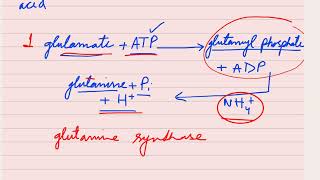 acid
1 glutamate + ATP → glutamyl phosphate
+ ADP
glutamine + Pi
+ H+
NH4+
glutamine synthase